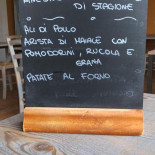 DI STAGIONE
ALI DI POLLO
ARISTA DI MAIALE CON
POMODORINI, RUCOLA E
GRANA
PATATE AL FORNO